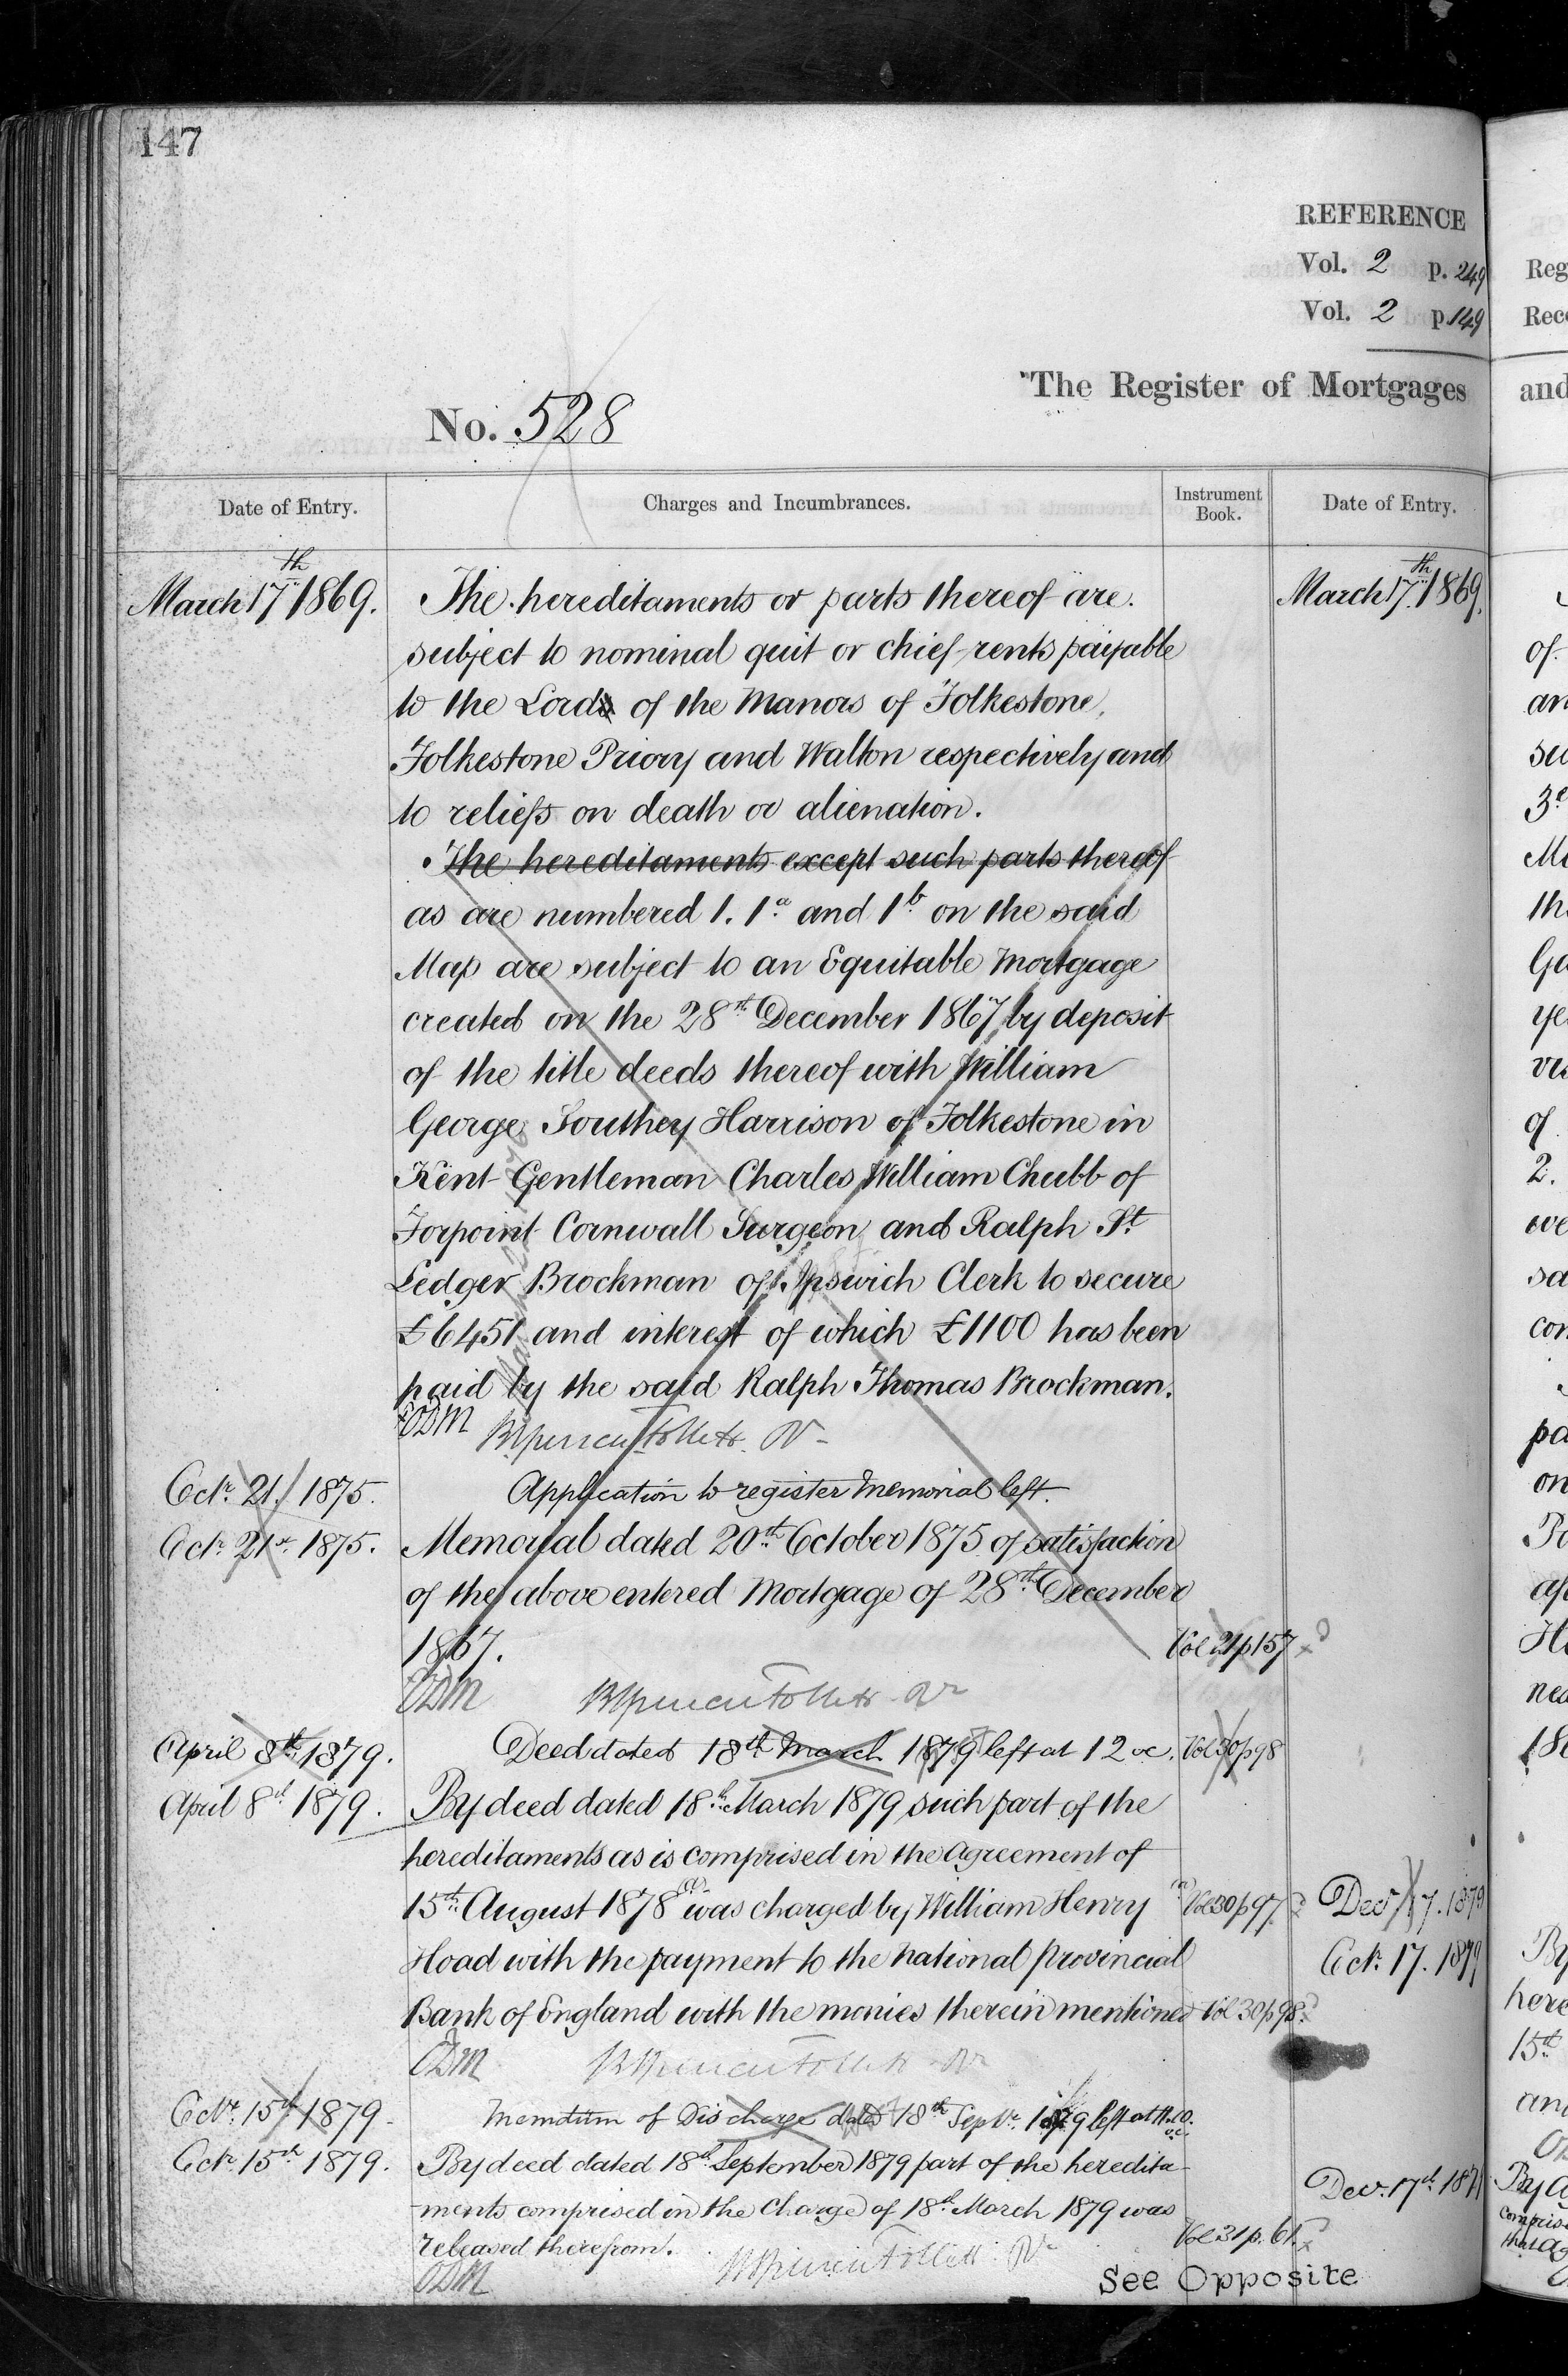 147
REFERENCE
Vol. 2 p. 249
Vol. 2 p. 149
The Register of Mortgages
No. 528
Date of Entry.
Charges and Incumbrances.
Instrument Book.
Date of Entry.
March 17th 1869.
The hereditaments or parts thereof are
subject to nominal quit or chief rents payable
to the Lords of the Manors of Folkestone,
Folkestone Priory and Walton respectively and
to reliefs on death or alienation.
The hereditaments except such parts thereof
as are numbered 1. 1a and 1b on the said
Map are subject to an Equitable Mortgage
created on the 28th December 1867 by deposit
of the title deeds thereof with William
George Southey Harrison of Folkestone in
Kent Gentleman Charles William Chubb of
Torpoint Cornwall Surgeon and Ralph St
Ledger Brockman of Ipswich Clerk to secure
£6451 and interest of which £1100 has been
paid by the said Ralph Thomas Brockman.
March 17th 1869.
Octr. 21. 1875.
Application to register Memorial left.
Octr. 21st. 1875.
Memorial dated 20th October 1875 of satisfaction
of the above entered Mortgage of 28th December
1867.
Vol 21 p 157
April 8th 1879.
Deed dated 18th March 1879 left at 12 oc.
Vol 30 p 98
April 8th 1879.
By deed dated 18th March 1879 such part of the
hereditaments as is comprised in the Agreement of
15th August 1878 (a) was charged by William Henry
(a) Vol 30 p 97
Hoad with the payment to the National Provincial
Bank of England with the monies therein mentioned
Vol 30 p 98
17. 1879
Oct. 17. 1879
Octr. 15th 1879.
Memdum of Discharge dated 18th Septr. 1879 left at 11.10. o.c.
Octr. 15th 1879.
By deed dated 18th September 1879 part of the heredita-
ments comprised in the Charge of 18th March 1879 was
released therefrom.
Vol 31 p. 61.
See Opposite